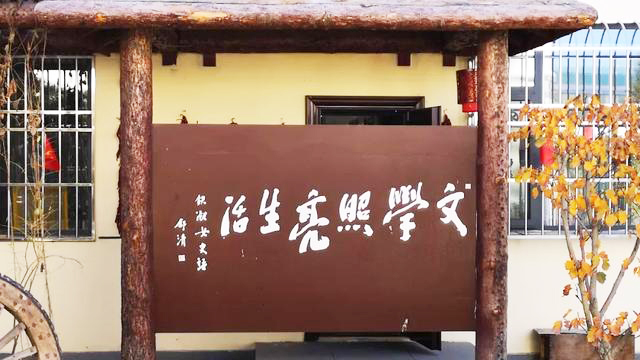 文學照亮生活
鉄凝女史語
舒清